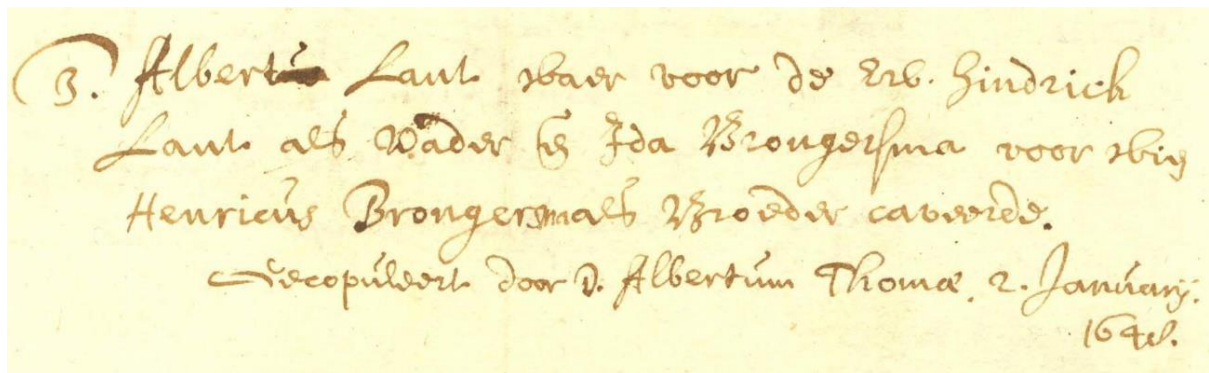 3. Albert Laut waer voor de Erb. Hindrick
Laut als Vader en Ida Brongersma voor wien
Henricus Brongersma als Broeder caveerde.
Gecopuleert door D. Albertum Thomæ. 2. January.